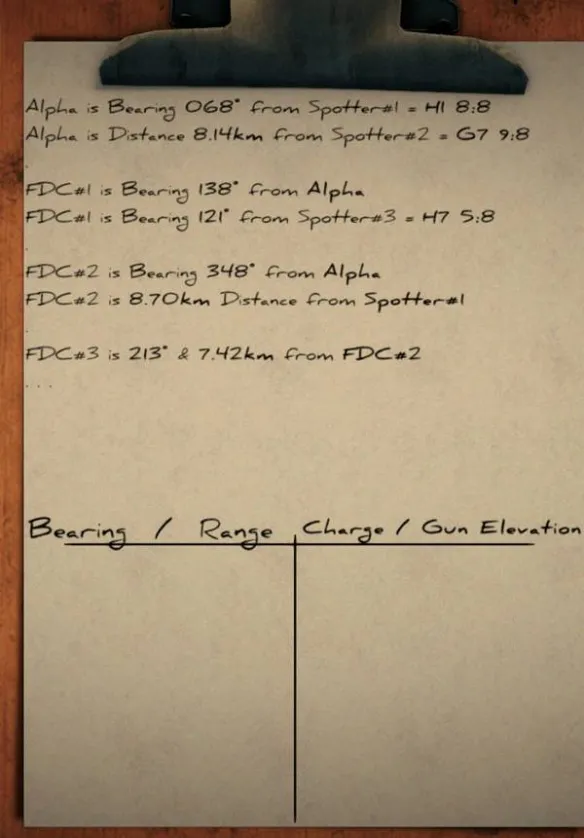 Alpha is Bearing 068° from Spotter#1 = H1 8:8
Alpha is Distance 8.14km from Spotter#2 = G7 9:8
.
FDC#1 is Bearing 138° from Alpha
FDC#1 is Bearing 121° from Spotter#3 = H7 5:8
.
FDC#2 is Bearing 348° from Alpha
FDC#2 is 8.70km Distance from Spotter#1
.
FDC#3 is 213° & 7.42km from FDC#2
. . .
Bearing / Range Charge / Gun Elevation